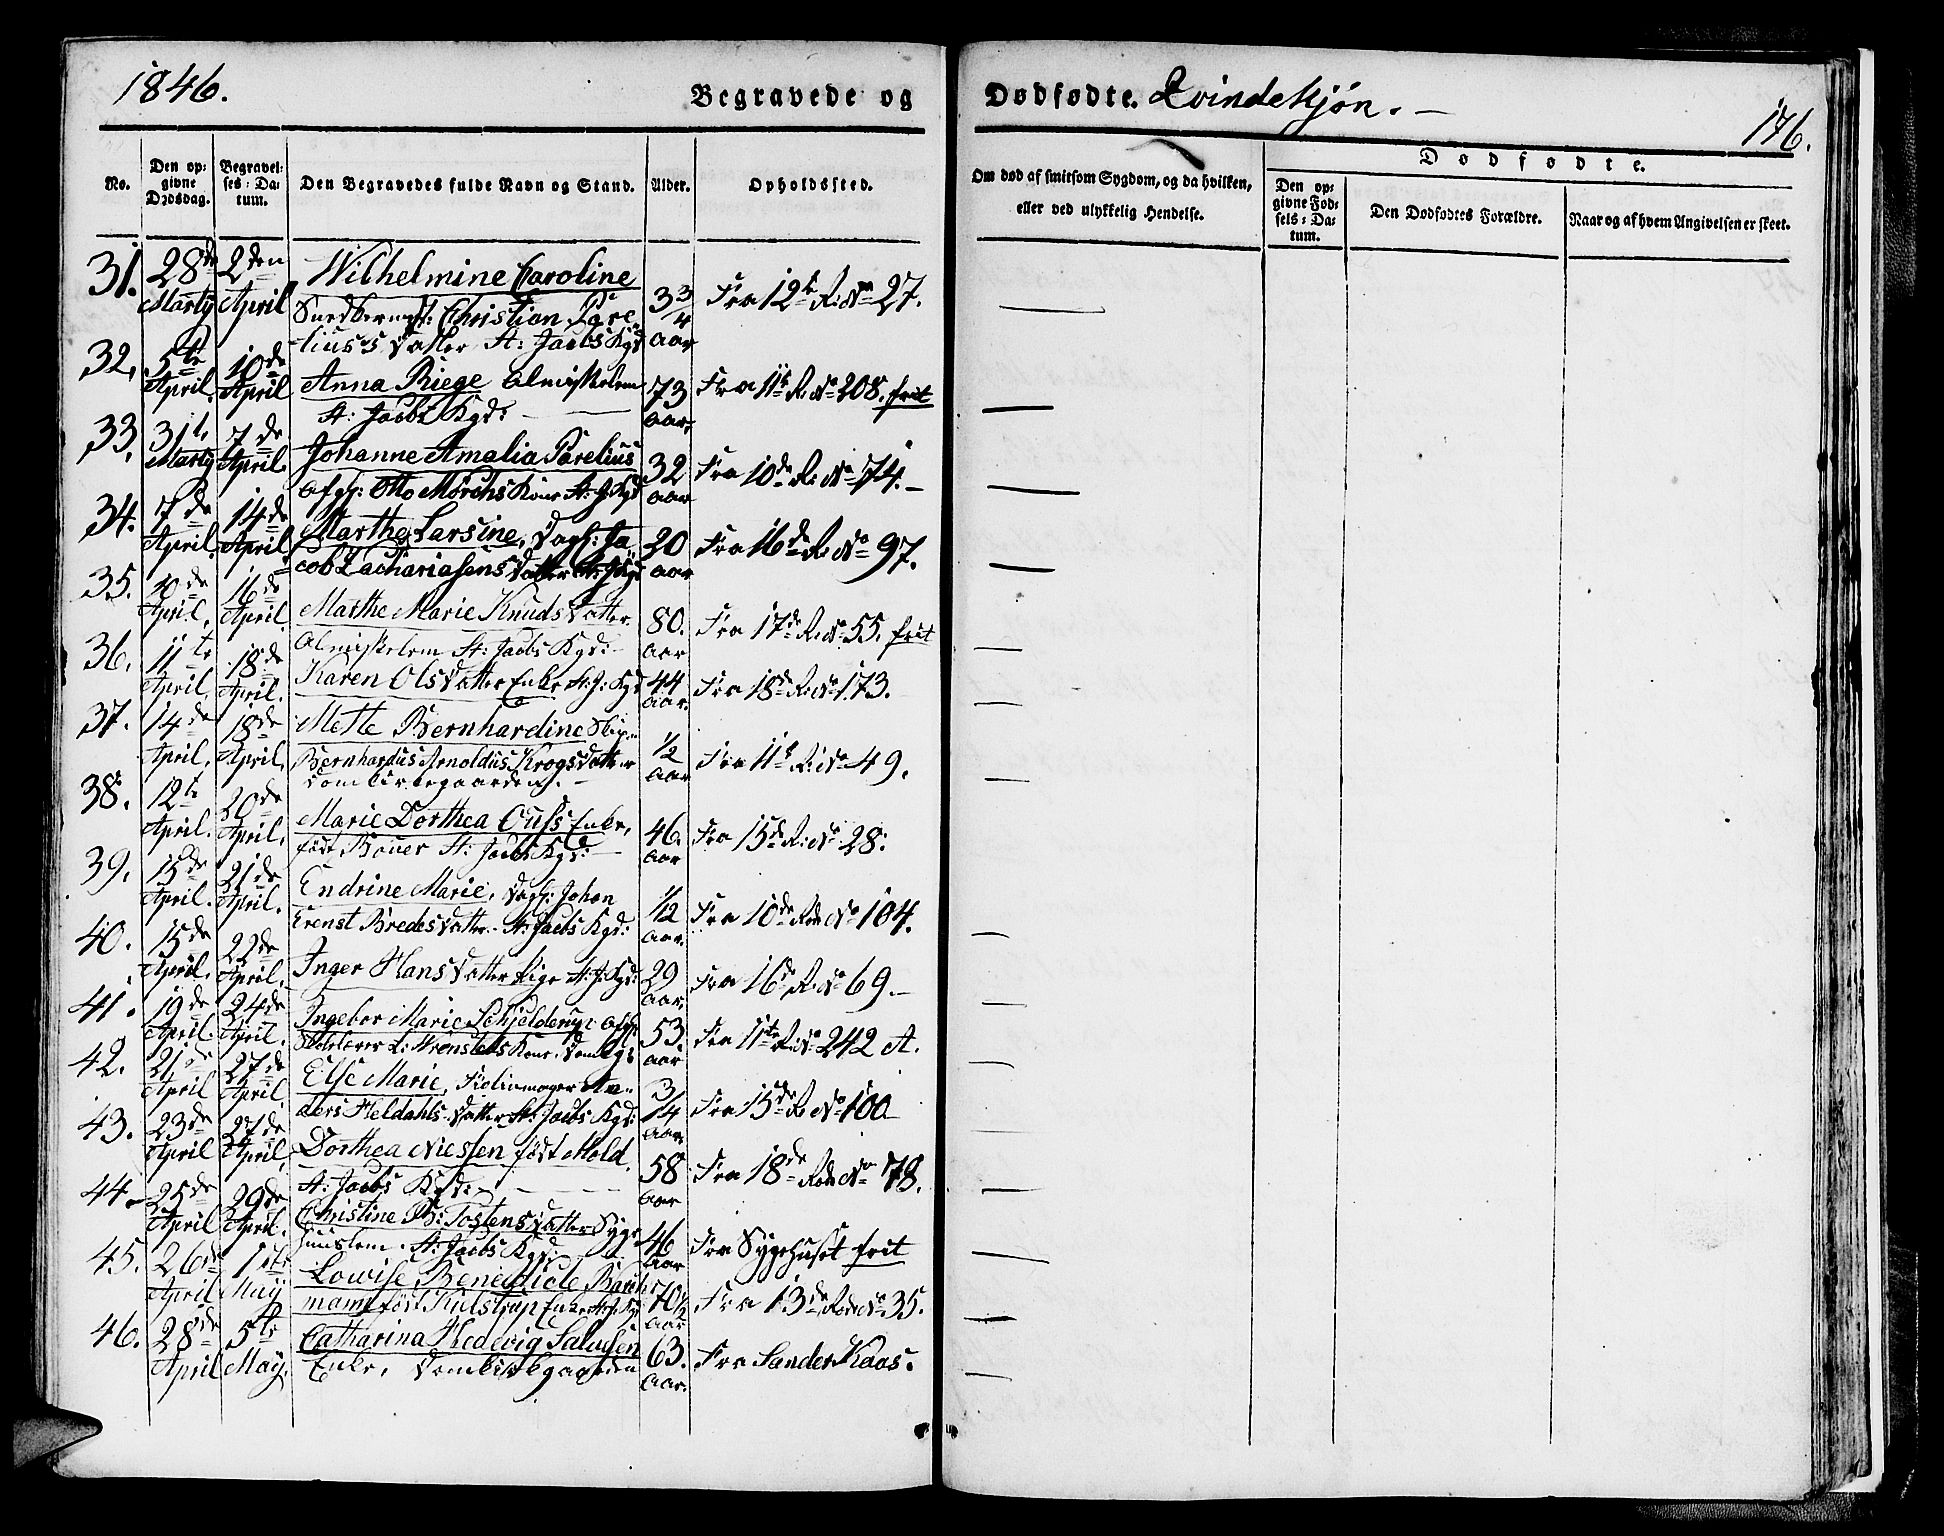 1846.
Begravede og
Dødfødte. Qvindekjøn. -
176.
No.
Den opgivne Dødsdag.
Begravelses-Datum.
Den Begravedes fulde Navn og Stand.
Alder.
Opholdssted.
Om død af smitsom Sygdom, og da hvilken,
eller ved ulykkelig Hendelse.
Dødfødte.
Den opgivne Fødsels-Datum.
Den Dødfødtes Forældre.
Naar og af hvem Angivelsen er skeet.
31. 28de Martij 2den April Wilhelmine Caroline 3 3/4 Aar Fra 12te R: No 27.
Christian Pare-
lius's Datter St: Jacobs Kgd
32. 5te April 10de April Anna Riege Almisselem 73 Aar, Fra 11te R: No 208. frit
St: Jacobs Kgd:
33. 31te Martij 7de April Johanne Amalia Parelius 32 Aar Fra 10de R: No 74. -
Otto Mørchs Kone St: J: Kgd
34. 7de April 14de April Marthe Larsine, Dagl: Ja- 20 Aar Fra 16de R: No 97.
cob Zachariasens Datter St: J: Kgd
35. 10de April, 16de April Marthe Marie Knudsdatter 80. Aar Fra 17de R: No 55. frit
Almisselem St: Jacobs Kgd:
36. 11te April, 18de April. Karen Olsdatter Enke St: J: Kgd 44 Aar. Fra 18de R: No 173.
37. 14de April, 18de April, Mette Bernhardine 1/2 Aar Fra 11te R: No 49.
Bernhardus Arnoldus Krogs Datter
Domkirkegaarden.
38. 12te April. 20de April, Marie Dorthea Enke, 46. Aar Fra 15de R: No 28.
født Bøuer St: Jacobs Kgd:
39. 15de April. 21de April. Endrine Marie, Dagl: Johan 1/2 Aar. Fra 10de Rode No 104.
Ernst Bredes Datter. St: Jacobs Kgd:
40. 15de April. 22de April, Inger Hansdatter Pige St: J: Kgd: 29 Aar, Fra 16de R: No 69. -
41. 19de April. 24de April. Ingebor Marie Schjelderup 53. Aar Fra 11te R: No 242 A.
Kone. Domkgd
42. 21de April 27de April, Else Marie, An- 3/4 Aar. Fra 15de R: No 100
ders Heldahls Datter St: Jacobs Kgd:
43. 23de April 27de April, Dorthea Niessen født Mold, 58 Aar Fra 18de Rode No 78.
St: Jacobs Kgd:
44. 25de April 29de April. Christine B: Tostensdatter Syge- 46 Aar Fra Sygehuset frit
huuslem. St: Jacobs Kgd:
45. 26de April 1ste Maij Lowise Benedicte 70 1/2 Aar Fra 13de Rode No 35.
mann født Enke St: J: Kgd
46. 28de April 5te Maij. Catharina Hedevig 63. Aar. Fra Sander Kaas.
Enke, Domkirkegaarden